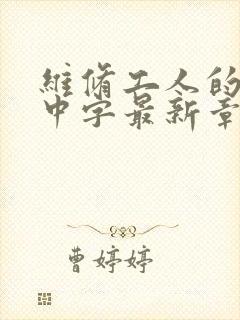 維脩工人的
中字最新章
曹婷婷